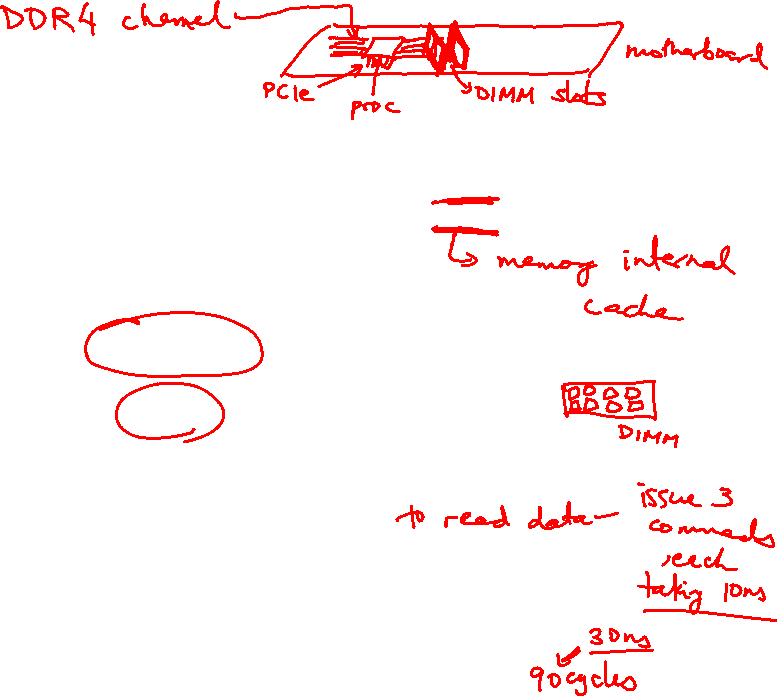 DDR4 channel
motherboard
PCIe
proc
DIMM slots
memory internal
cache
DIMM
to read data – issue 3
commands
each
taking 10ns
30ns
90cycles